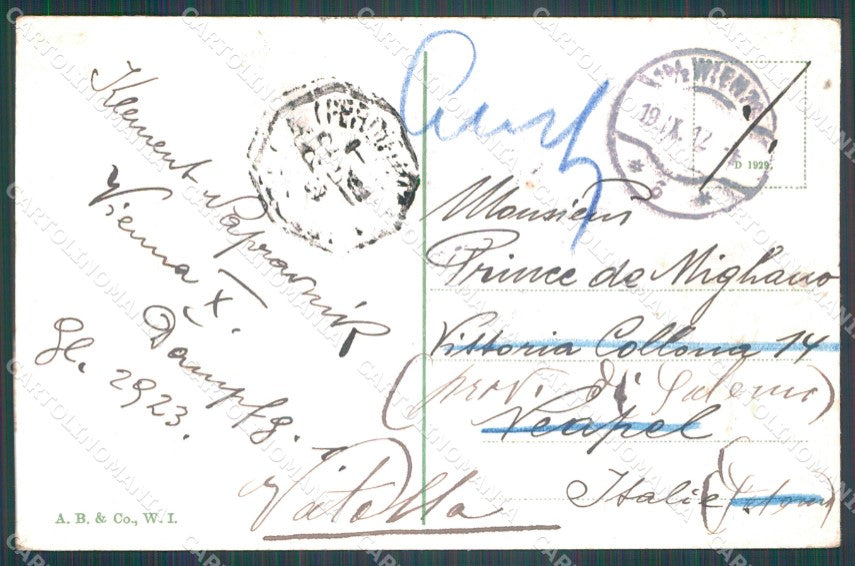 Klement Napravnik
Vienna X.
Dampfg.
2923.
WIEN
19.IX.12
6
D 1929.
Monsieur
Prince de Migliano
Vittoria Collona 14
(prov. di Salerno)
Neapel
Italie
Vatolla
A. B. & Co., W. I.
CARTOLINOMANIA